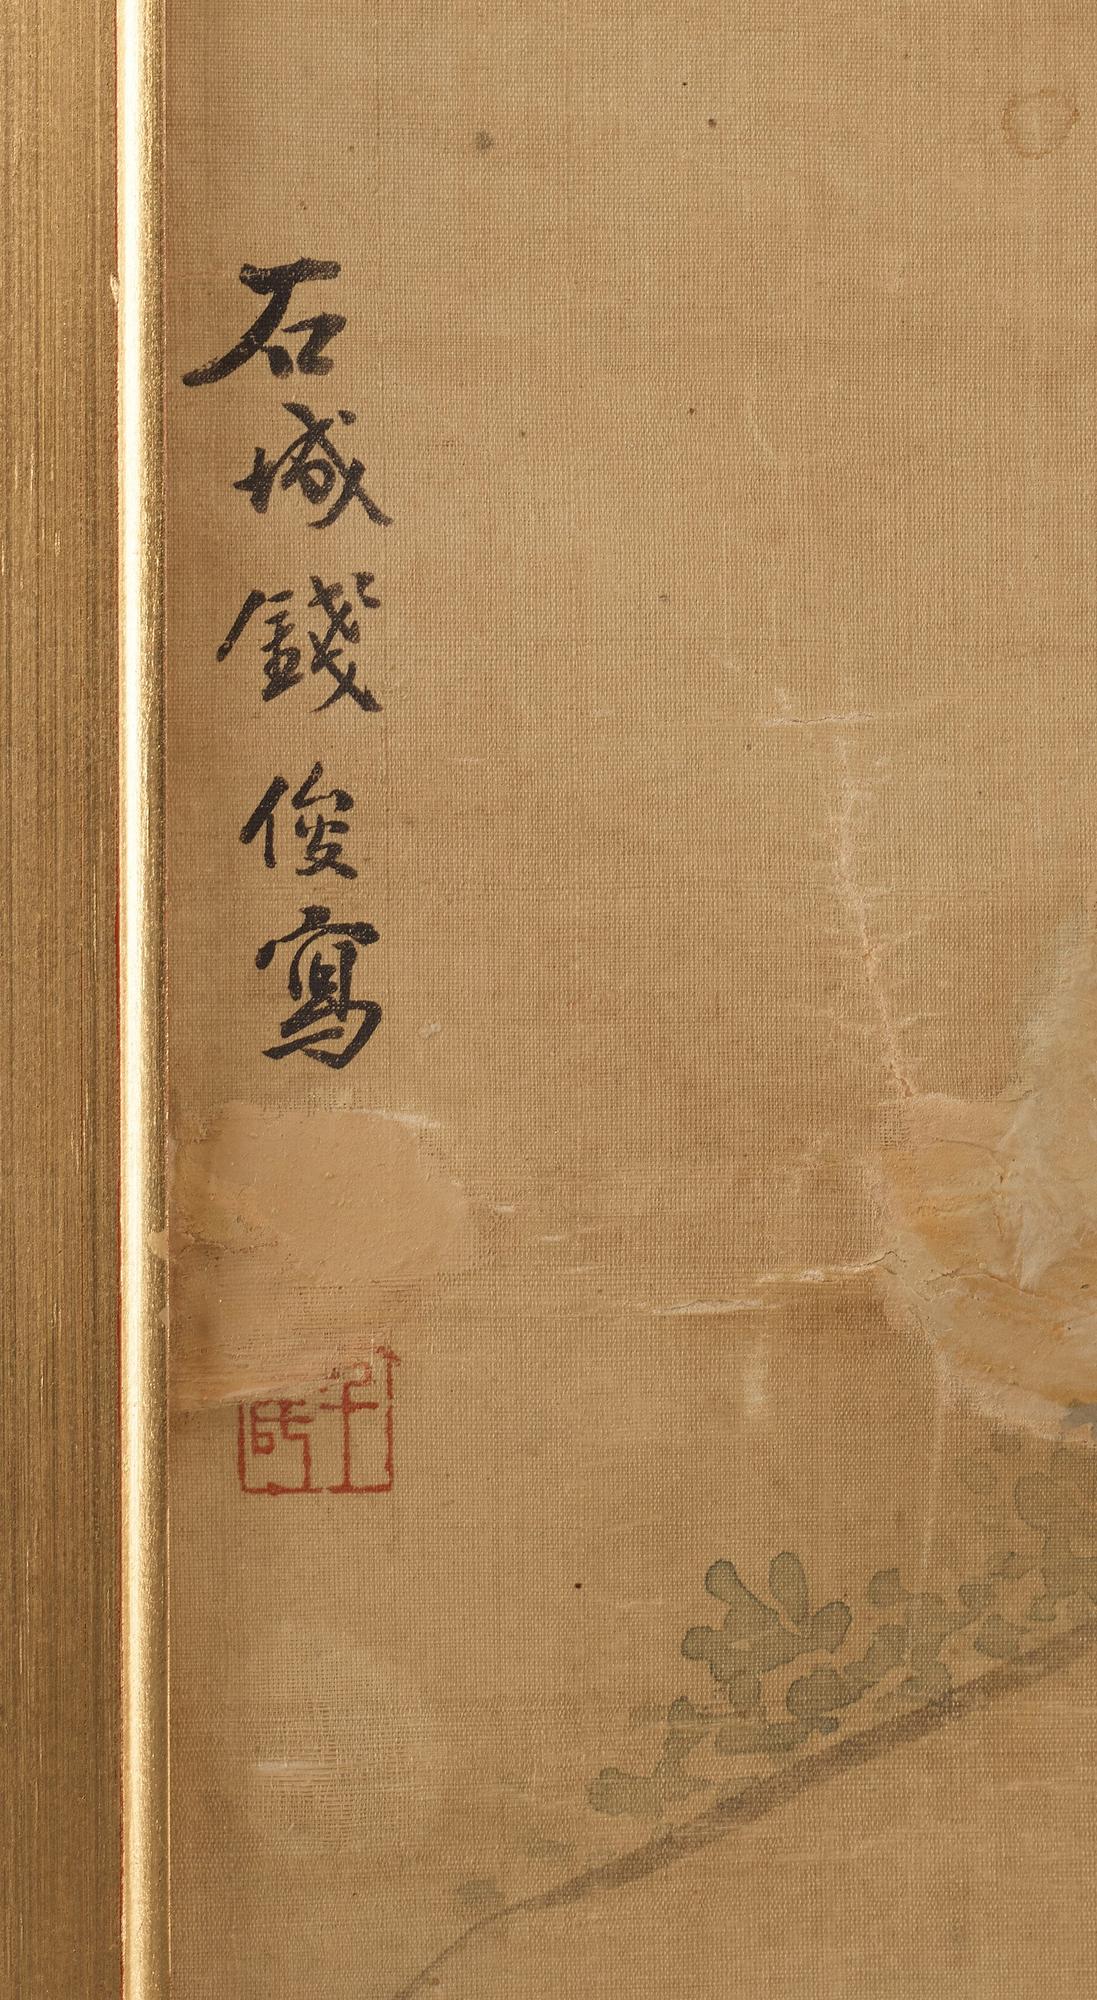 石城錢俊寫